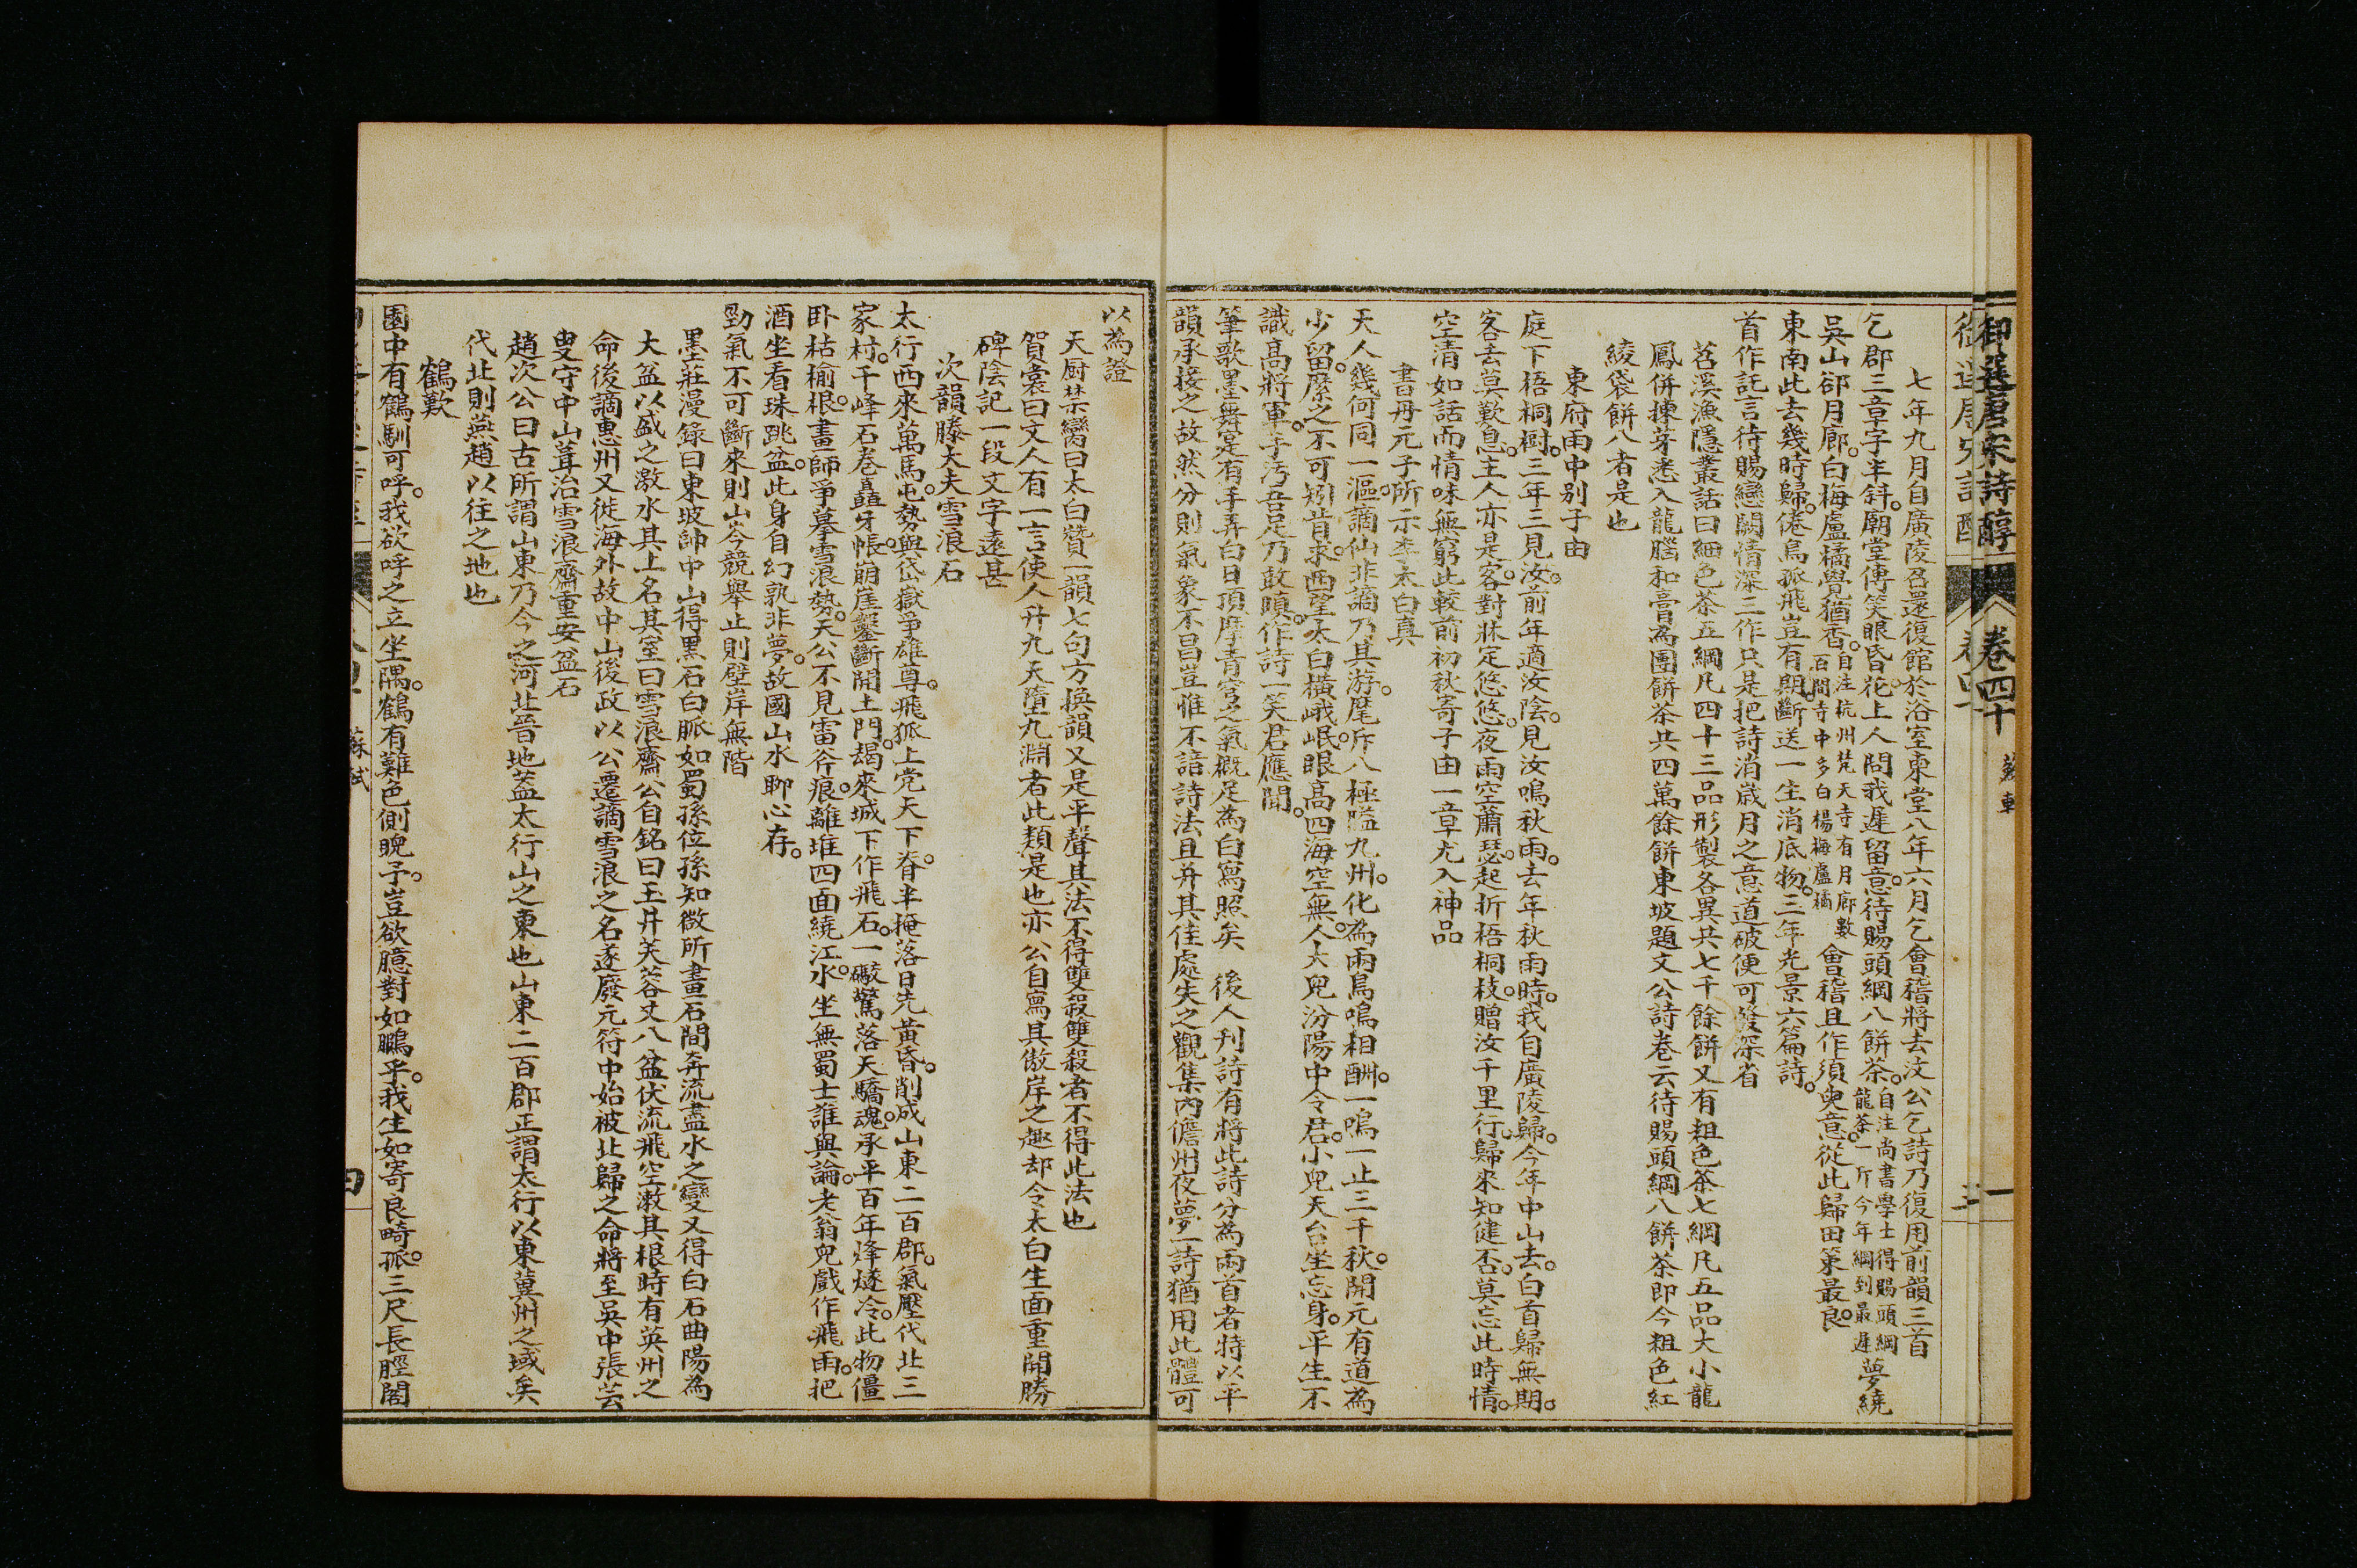 御選唐宋詩醇
卷四十
蘇軾
一
七年九月自廣陵召還復館於浴室東堂八年六月乞會稽將去汶公乞詩乃復用前韻三首
乞郡三章字半斜。廟堂傳笑眼昏花上人問我遲留意。待賜頭綱八餅茶。自注尚書學士得賜頭綱龍茶一斤今年綱到最遲夢繞
吳山郤月廊。白梅盧橘覺猶香。自注杭州梵天寺有月廊數百間寺中多白楊梅盧橘會稽且作須臾意。從此歸田策最良。
東南此去幾時歸。倦鳥孤飛豈有期。斷送一生消底物。三年光景六篇詩。
首作託言待賜戀闕情深二作只是把詩消歲月之意道破便可發深省
苕溪漁隱叢話曰細色茶五綱凡四十三品形製各異共七千餘餅又有粗色茶七綱凡五品大小龍
鳳併揀芽悉入龍腦和膏為團餅茶共四萬餘餅東坡題文公詩卷云待賜頭綱八餅茶即今粗色紅
綾袋餅八者是也
東府雨中別子由
庭下梧桐樹。三年三見汝。前年適汝陰。見汝鳴秋雨。去年秋雨時。我自廣陵歸。今年中山去。白首歸無期。
客去莫歎息。主人亦是客。對牀定悠悠。夜雨空蕭瑟。起折梧桐枝。贈汝千里行。歸來知健否。莫忘此時情。
空清如話而情味無窮此較前初秋寄子由一章尤入神品
書丹元子所示李太白真
天人幾何同一漚。謫仙非謫乃其游。麾斥八極隘九州。化為兩鳥鳴相酬。一鳴一止三千秋。開元有道為
少留。縻之不可矧肯求。西望太白橫峨岷。眼高四海空無人。大兒汾陽中令君。小兒天台坐忘身。平生不
識高將軍。手汚吾足乃敢瞋。作詩一笑君應聞。
筆歌墨舞寔有手弄白日頂摩青穹之氣概足為白寫照矣　後人刊詩有將此詩分為兩首者特以平
韻承接之故然分則氣象不昌豈惟不諳詩法且并其佳處失之觀集內儋州夜夢一詩猶用此體可
以為證
天厨禁臠曰太白贊一韻七句方換韻又是平聲其法不得雙殺雙殺者不得此法也
賀裳曰文人有一言使人升九天墮九淵者此類是也亦公自寫其傲岸之趣却令太白生面重開勝
碑陰記一段文字遠甚
次韻滕大夫雪浪石
太行西來萬馬屯。勢與岱嶽爭雄尊。飛狐上党天下脊。半掩落日先黃昏。削成山東二百郡。氣壓代北三
家村。千峰石卷矗牙帳。崩崖鑿斷開土門。朅來城下作飛石。一礮驚落天驕魂。承平百年烽燧冷。此物僵
卧枯榆根。畫師爭摹雪浪勢。天公不見雷斧痕。離堆四面繞江水。坐無蜀士誰與論。老翁兒戲作飛雨。把
酒坐看珠跳盆。此身自幻孰非夢。故國山水聊心存。
勁氣不可斷來則山岑競舉止則壁岸無階
墨莊漫錄曰東坡帥中山得黑石白脈如蜀孫位孫知微所畫石間奔流盡水之變又得白石曲陽為
大盆以盛之激水其上名其室曰雪浪齋公自銘曰玉井芙蓉丈八盆伏流飛空漱其根時有英州之
命後謫惠州又徙海外故中山後政以公遷謫雪浪之名遂廢元符中始被北歸之命將至吳中張芸
叟守中山葺治雪浪齋重安盆石
趙次公曰古所謂山東乃今之河北晉地葢太行山之東也山東二百郡正謂太行以東冀州之域矣
代北則燕趙以往之地也
鶴歎
園中有鶴馴可呼。我欲呼之立坐隅。鶴有難色側睨予。豈欲臆對如鵩乎。我生如寄良畸孤。三尺長脛閣
蘇軾
四